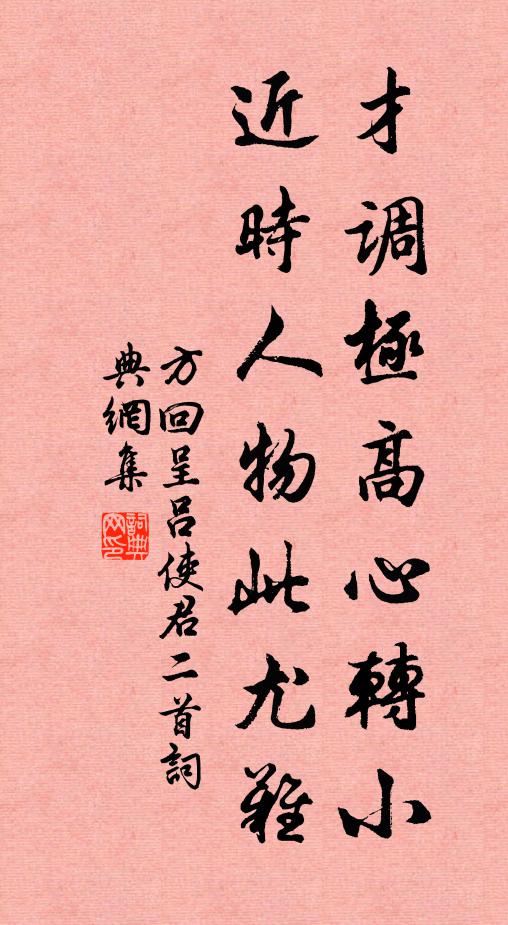 才調極高心轉小
近時人物此尤難
方回呈吕使君二首詞
典網集
詞典网印